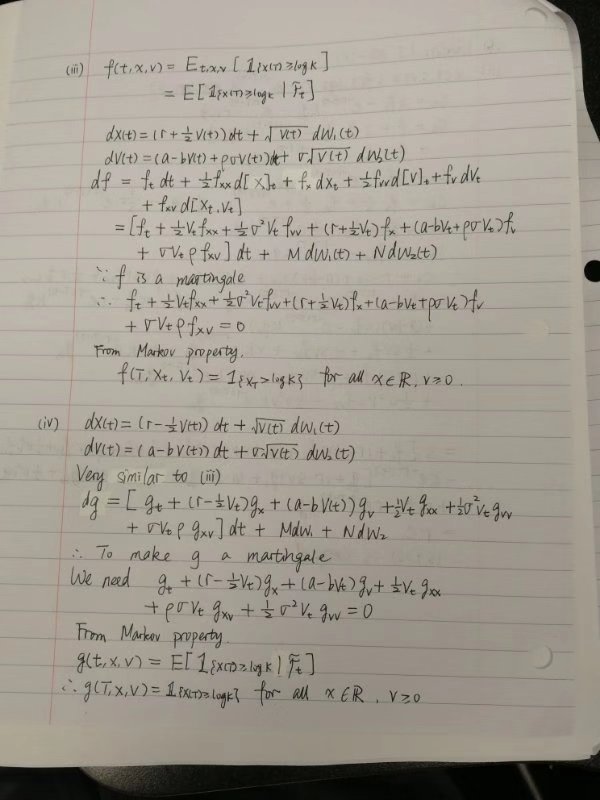 (iii) f(t,x,v) = E_{t,x,v} [ 1_{\{X(T) ≥ log K\}} ]
= E[ 1_{\{X(T) ≥ log K\}} | F_t ]
dX(t) = (r + ½V(t))dt + √V(t) dW₁(t)
dV(t) = (a - bV(t) + ρσV(t))dt + σ√V(t) dW₂(t)
df = f_t dt + ½f_{xx} d[X]_t + f_x dX_t + ½f_{vv} d[V]_t + f_v dV_t
+ f_{xv} d[X_t, V_t]
= [f_t + ½V_t f_{xx} + ½σ²V_t f_{vv} + (r+½V_t)f_x + (a-bV_t+ρσV_t)f_v
+ σV_tρ f_{xv}] dt + M dW₁(t) + N dW₂(t)
∵ f is a martingale
∴ f_t + ½V_t f_{xx} + ½σ²V_t f_{vv} + (r+½V_t)f_x + (a-bV_t+ρσV_t)f_v
+ σV_tρ f_{xv} = 0
From Markov property,
f(T, X_t, V_t) = 1_{\{X_T > log K\}} for all x∈ℝ, v≥0.
(iv) dX(t) = (r - ½V(t)) dt + √V(t) dW₁(t)
dV(t) = (a - bV(t))dt + σ√V(t) dW₂(t)
Very similar to (iii)
dg = [ g_t + (r-½V_t)g_x + (a-bV(t))g_v + ½V_t g_{xx} + ½σ²V_t g_{vv}
+ σV_tρ g_{xv} ] dt + MdW₁ + NdW₂
∴ To make g a martingale
We need g_t + (r-½V_t)g_x + (a-bV_t)g_v + ½V_t g_{xx}
+ ρσV_t g_{xv} + ½σ²V_t g_{vv} = 0
From Markov property.
g(t,x,v) = E[ 1_{\{X(T) ≥ log K\}} | F_t ]
∴ g(T,x,v) = 1_{\{X(T) ≥ log K\}} for all x∈ℝ, v≥0